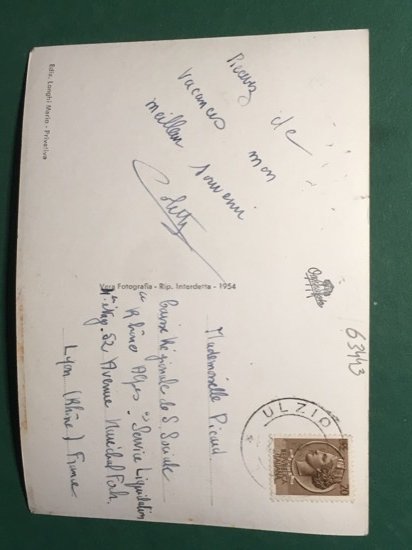 Ediz. Longhi Mario - Privativa
de mon
vacances
meilleur souvenir
Colette
Vera Fotografia - Rip. Interdetta - 1954
63443
ULZIO
Mademoiselle Picaud
Caisse Régionale de S. Sociale
Rhône Alpes "Service Liquidation
52 Avenue Maréchal Foch
Lyon (Rhône) France